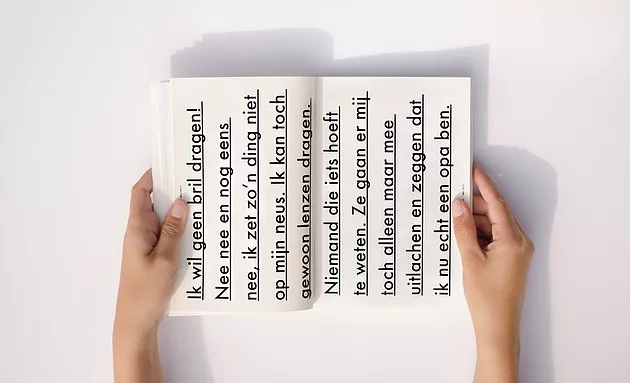 Ik wil geen bril dragen!
Nee nee en nog eens
nee, ik zet zo’n ding niet
op mijn neus. Ik kan toch
gewoon lenzen dragen.
Niemand die iets hoeft
te weten. Ze gaan er mij
toch alleen maar mee
uitlachen en zeggen dat
ik nu echt een opa ben.